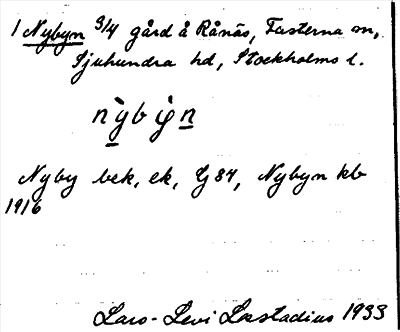 1 Nybyn 3/4 gård å Rånäs, Fasterna sn,
Sjuhundra hd, Stockholms l.
nỳbỳn
Nyby bek, ek, G 84, Nybyn kb
1916
Lars-Levi Læstadius 1933